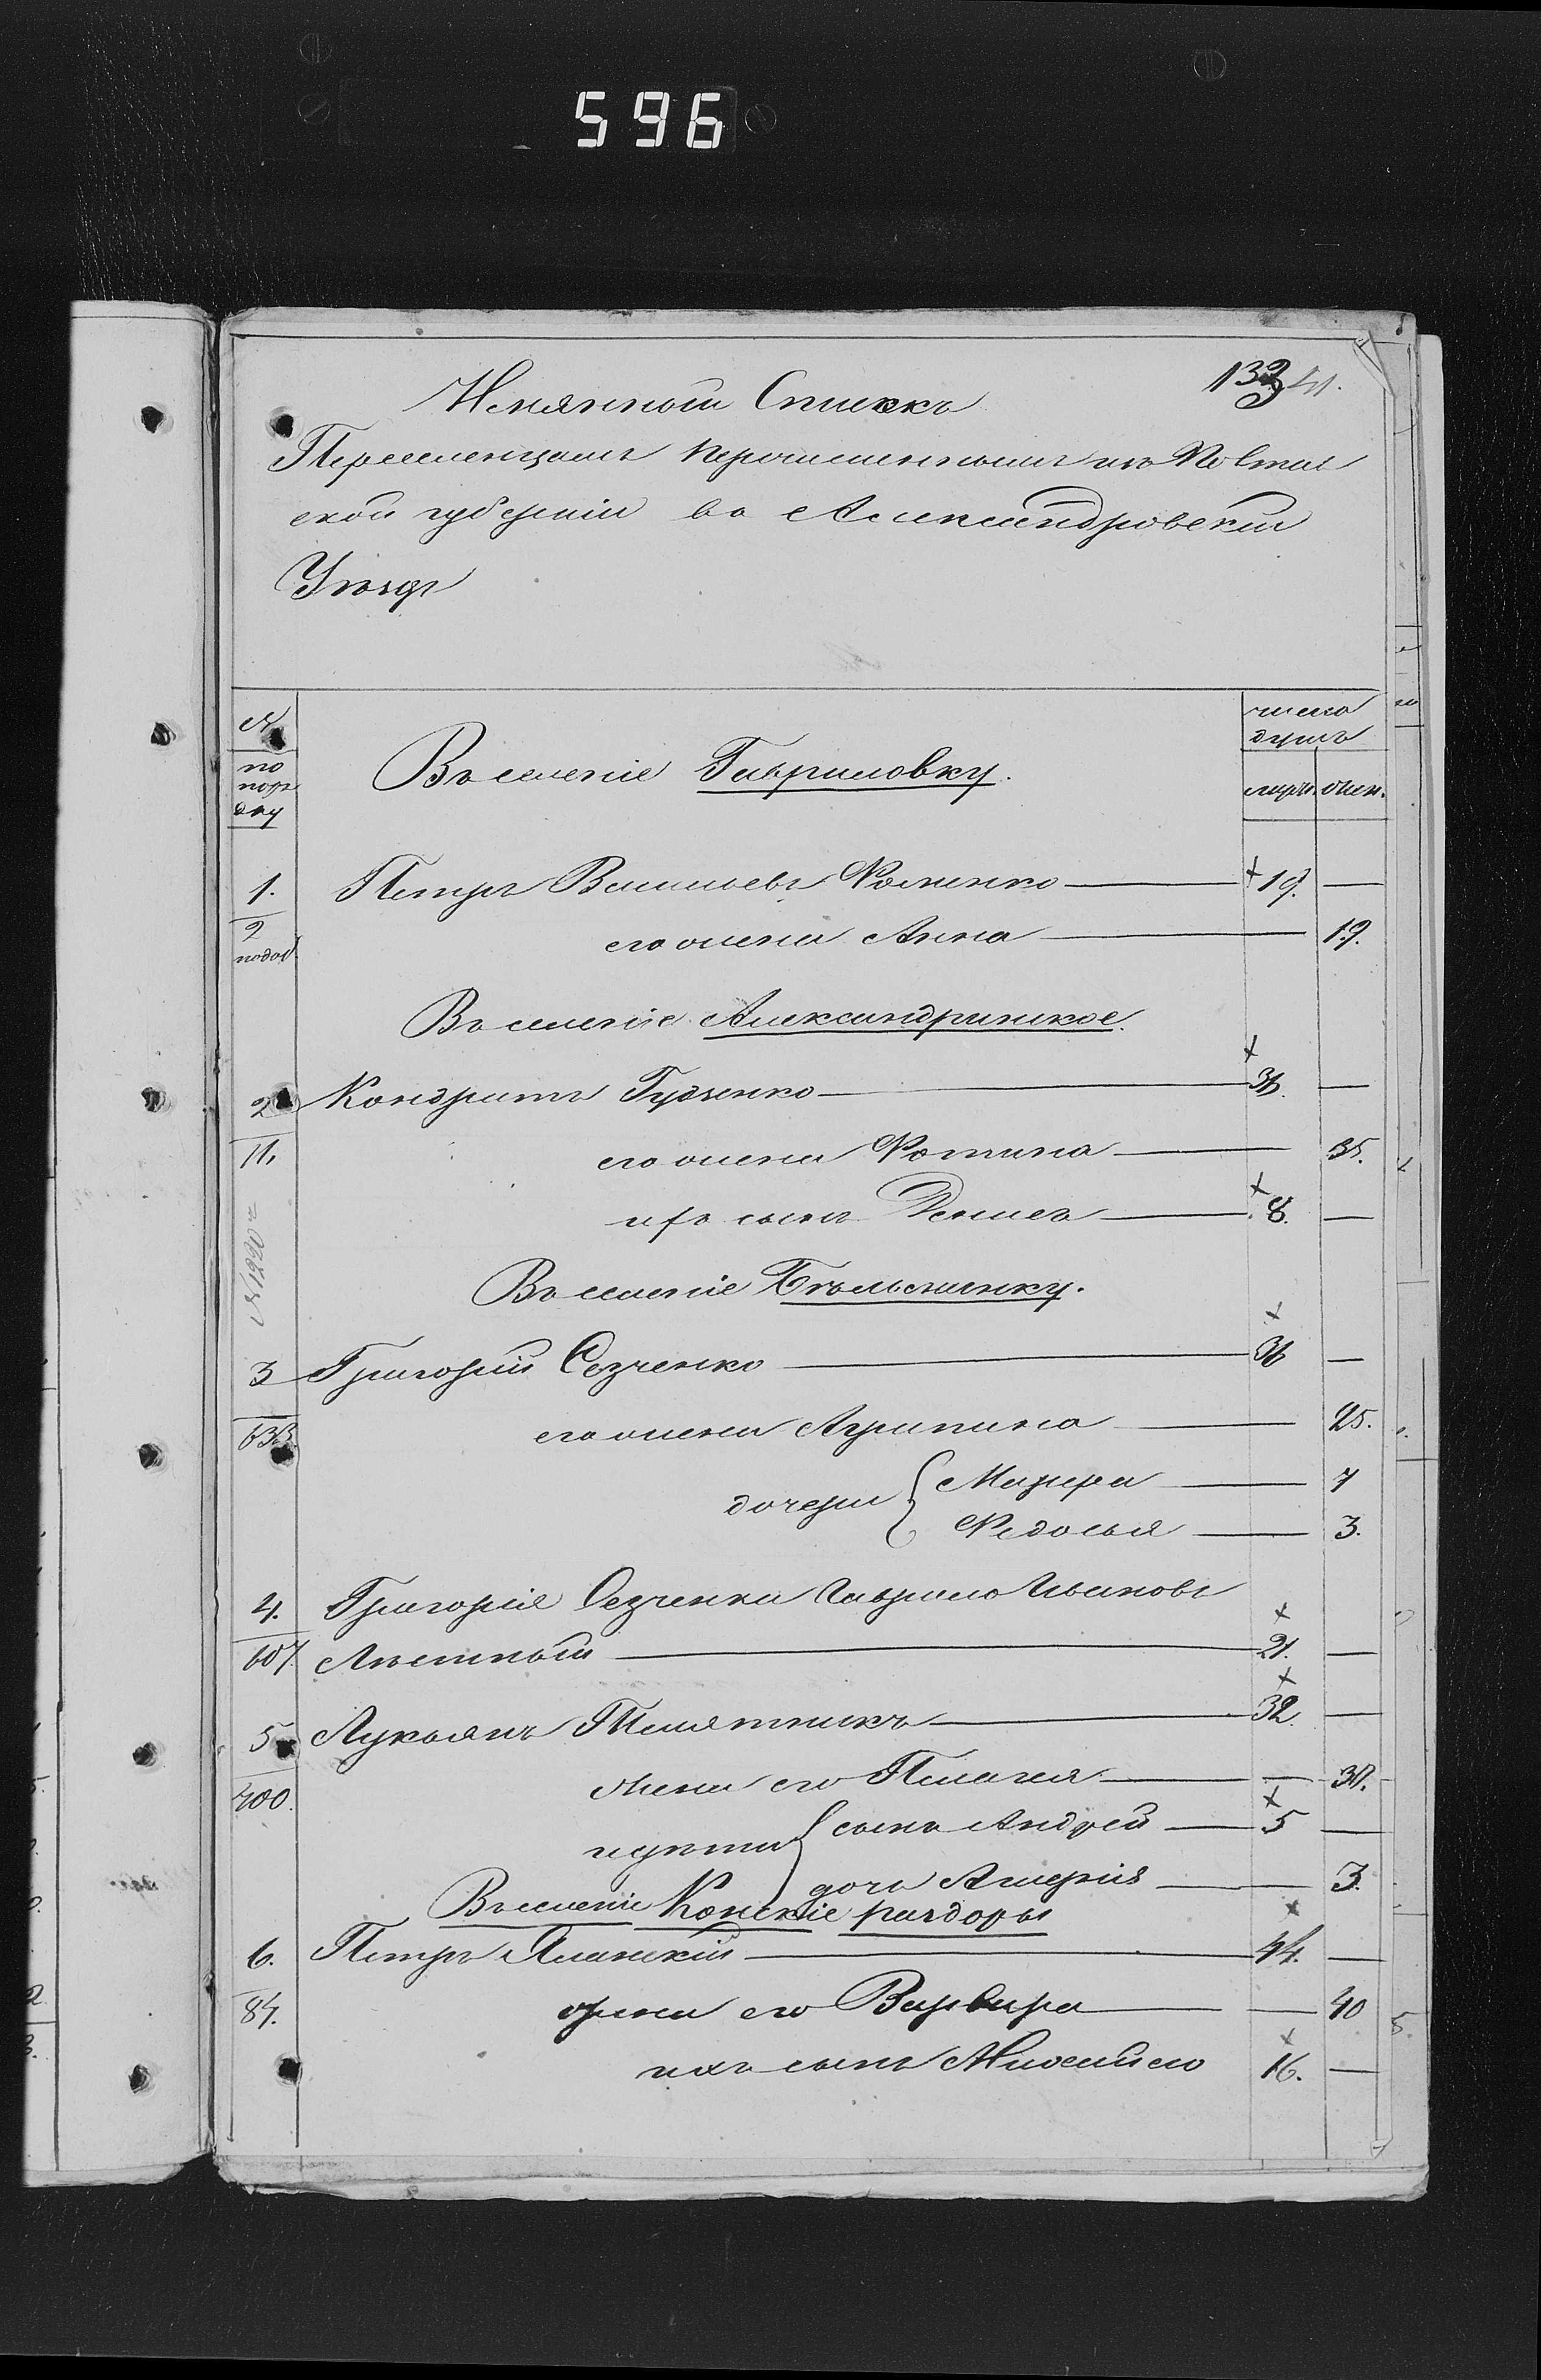 596
133 41.
Именной Списокъ
Переселенцамъ перечисленнымъ изъ Полтав
ской губерніи во Александровскій
Уѣздъ
№
по
поря
дку
число
душъ
муж. жен.
Въ селеніе Гавриловку.
1. Петръ Васильевъ Роменко 19. —
2 его жена Анна 19.
Въ селеніе Александринское.
2 Кондратъ Гудзенко 36. —
11. его жена Фотина 35.
ихъ сынъ Денисъ 8. —
№ 1220
Въ селеніе Бѣльманку.
3 Григорій Сезченко 36 —
633. его жена Агрипина 25.
дочери { Мавра 7
Федосья 3.
4. Григорія Сезченка Гаврило Ивановъ
607. 21. —
5 Лукьянъ Телятникъ 32. —
400. жена его Пелагея — 30.
ихъ дѣти { сынъ Андрей 5 —
дочь 3.
Въ селеніе Конскіе раздоры
6. Петръ 44. —
84. жена его Варвара — 40
ихъ сынъ 16. —